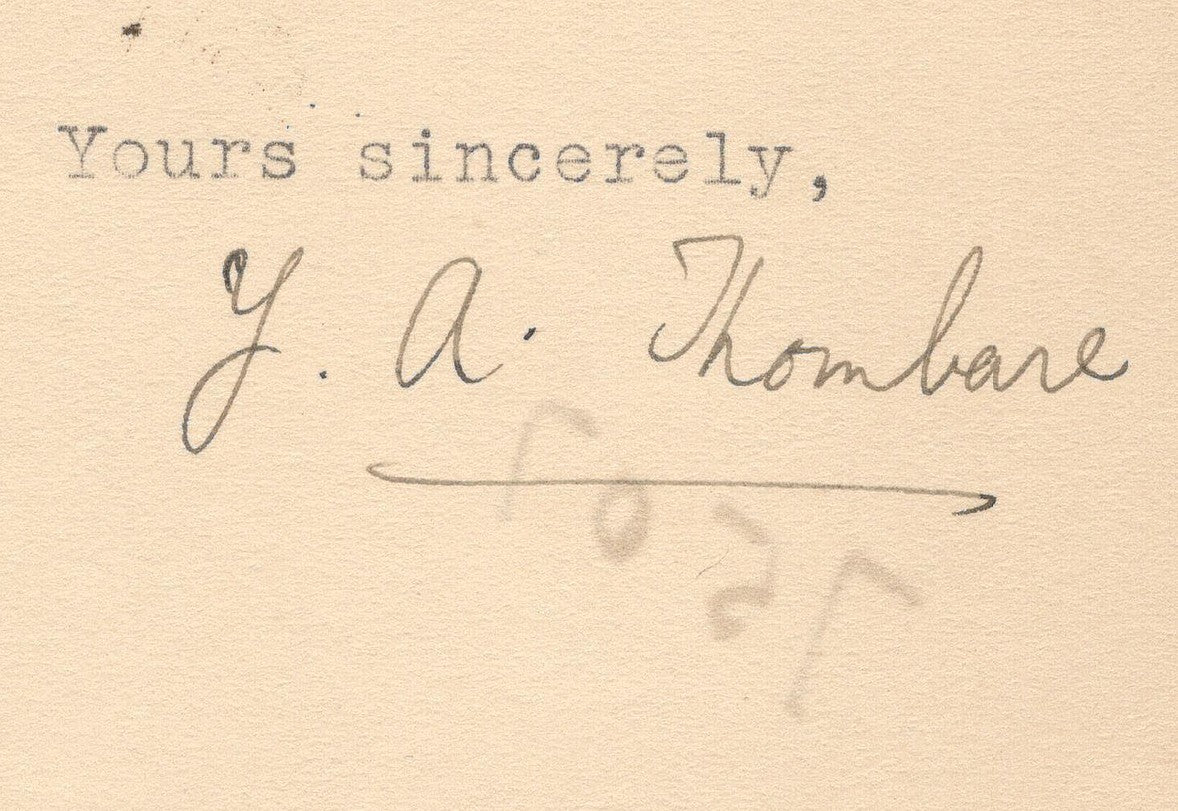 Yours sincerely,
Y. A. Thombare